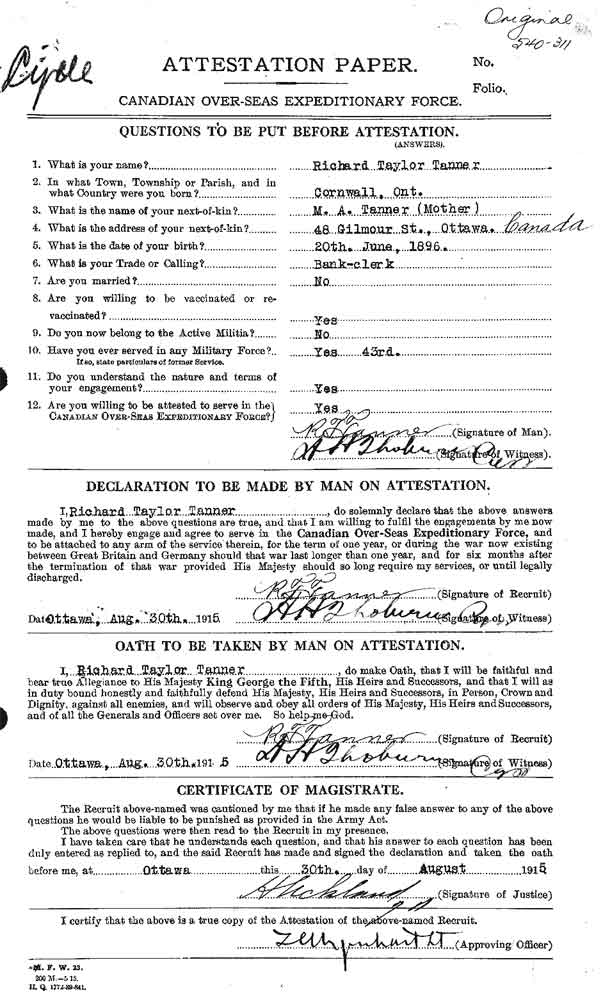 Original
540-311
ATTESTATION PAPER.
No.
Folio.
CANADIAN OVER-SEAS EXPEDITIONARY FORCE.
QUESTIONS TO BE PUT BEFORE ATTESTATION.
(ANSWERS).
1. What is your name? Richard Taylor Tanner
2. In what Town, Township or Parish, and in
what Country were you born? Cornwall, Ont.
3. What is the name of your next-of-kin? M. A. Tanner (Mother)
4. What is the address of your next-of-kin? 48 Gilmour St., Ottawa. Canada
5. What is the date of your birth? 20th. June, 1896.
6. What is your Trade or Calling? Bank-clerk
7. Are you married? No
8. Are you willing to be vaccinated or re-
vaccinated? Yes
9. Do you now belong to the Active Militia? No
10. Have you ever served in any Military Force? Yes 43rd.
If so, state particulars of former Service.
11. Do you understand the nature and terms of
your engagement? Yes
12. Are you willing to be attested to serve in the
CANADIAN OVER-SEAS EXPEDITIONARY FORCE? Yes
Tanner (Signature of Man).
(Signature of Witness).
DECLARATION TO BE MADE BY MAN ON ATTESTATION.
I, Richard Taylor Tanner, do solemnly declare that the above answers
made by me to the above questions are true, and that I am willing to fulfil the engagements by me now
made, and I hereby engage and agree to serve in the Canadian Over-Seas Expeditionary Force, and
to be attached to any arm of the service therein, for the term of one year, or during the war now existing
between Great Britain and Germany should that war last longer than one year, and for six months after
the termination of that war provided His Majesty should so long require my services, or until legally
discharged.
Tanner (Signature of Recruit)
Date Ottawa, Aug. 30th. 1915 (Signature of Witness)
OATH TO BE TAKEN BY MAN ON ATTESTATION.
I, Richard Taylor Tanner, do make Oath, that I will be faithful and
bear true Allegiance to His Majesty King George the Fifth, His Heirs and Successors, and that I will as
in duty bound honestly and faithfully defend His Majesty, His Heirs and Successors, in Person, Crown and
Dignity, against all enemies, and will observe and obey all orders of His Majesty, His Heirs and Successors,
and of all the Generals and Officers set over me. So help me God.
Tanner (Signature of Recruit)
Date Ottawa, Aug. 30th. 1915 (Signature of Witness)
CERTIFICATE OF MAGISTRATE.
The Recruit above-named was cautioned by me that if he made any false answer to any of the above
questions he would be liable to be punished as provided in the Army Act.
The above questions were then read to the Recruit in my presence.
I have taken care that he understands each question, and that his answer to each question has been
duly entered as replied to, and the said Recruit has made and signed the declaration and taken the oath
before me, at Ottawa this 30th. day of August 1915
(Signature of Justice)
I certify that the above is a true copy of the Attestation of the above-named Recruit.
(Approving Officer)
M. F. W. 23.
200 M.—5 15.
H. Q. 1772-39-841.